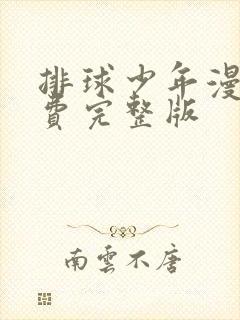 排球少年漫
費完整版
南雲不唐